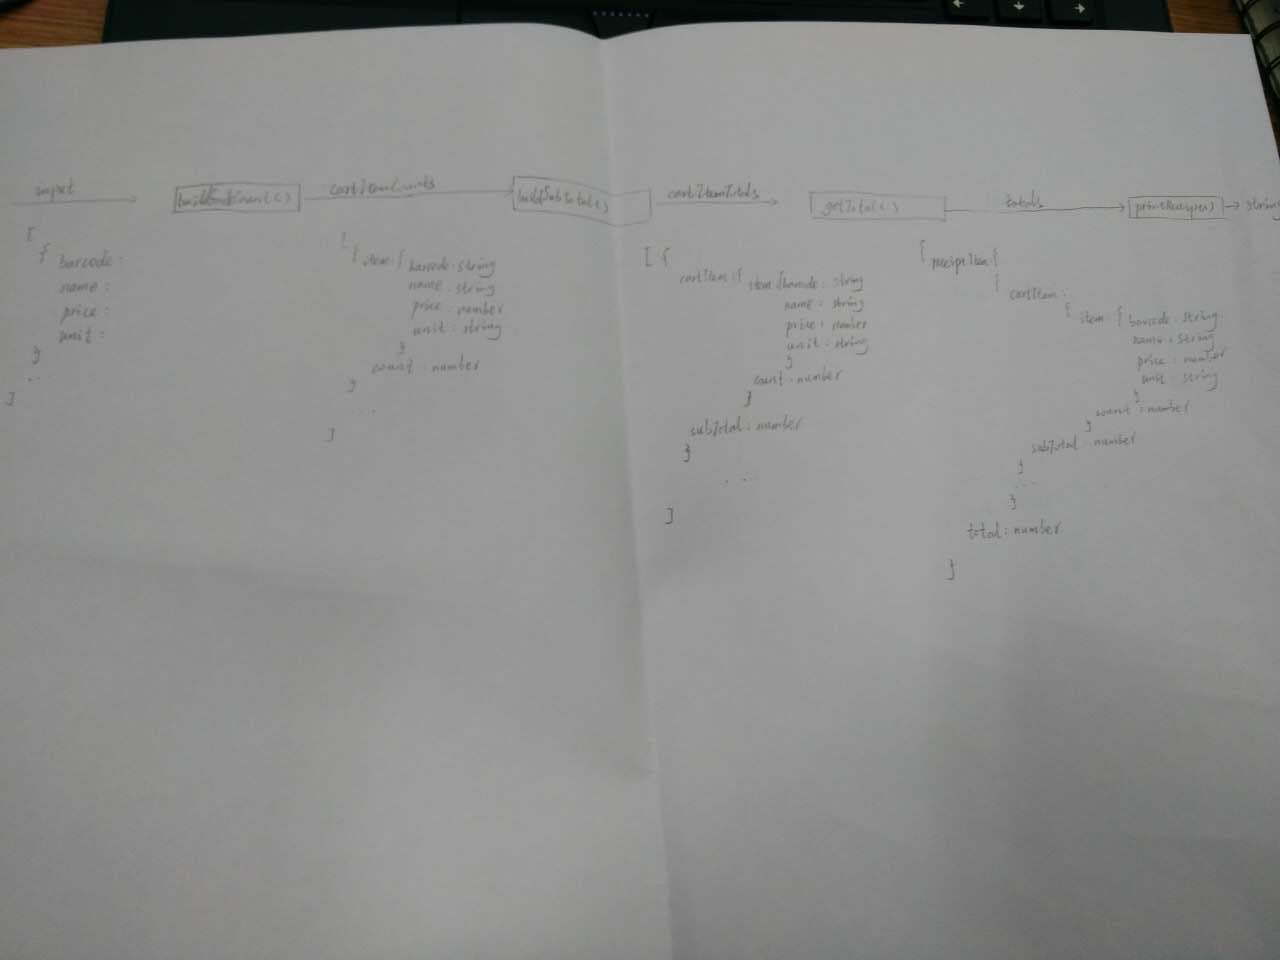 input
cartItemCounts
buildSubtotal()
cartItemTotals
getTotal()
totals
string
[
{ barcode:
name:
price:
unit:
}
...
]
[
{ item { barcode: string
name: string
price: number
unit: string
}
count: number
}
...
]
[ {
cartItem: { item { barcode: string
name: string
price: number
unit: string
}
count: number
}
subTotal: number
}
...
]
{
{ cartItem:
{ item: { barcode: string
name: string
price: number
unit: string
}
count: number
}
subTotal: number
}
...
}
total: number
}